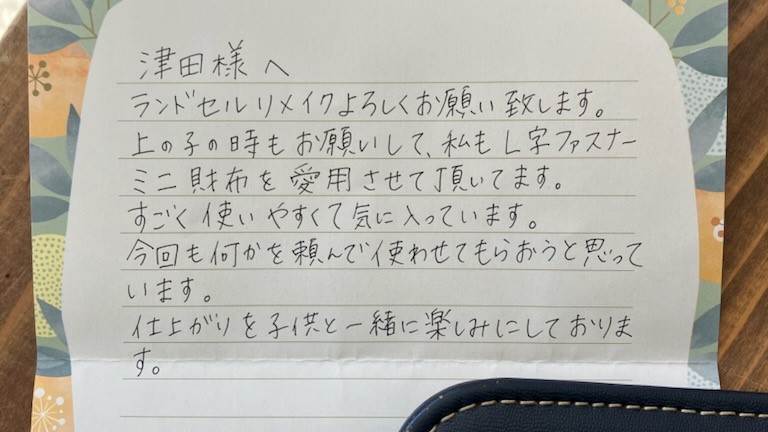 津田様へ
ランドセルリメイクよろしくお願い致します。
上の子の時もお願いして、私もL字ファスナー
ミニ財布を愛用させて頂いてます。
すごく使いやすくて気に入っています。
今回も何かを頼んで使わせてもらおうと思って
います。
仕上がりを子供と一緒に楽しみにしておりま
す。